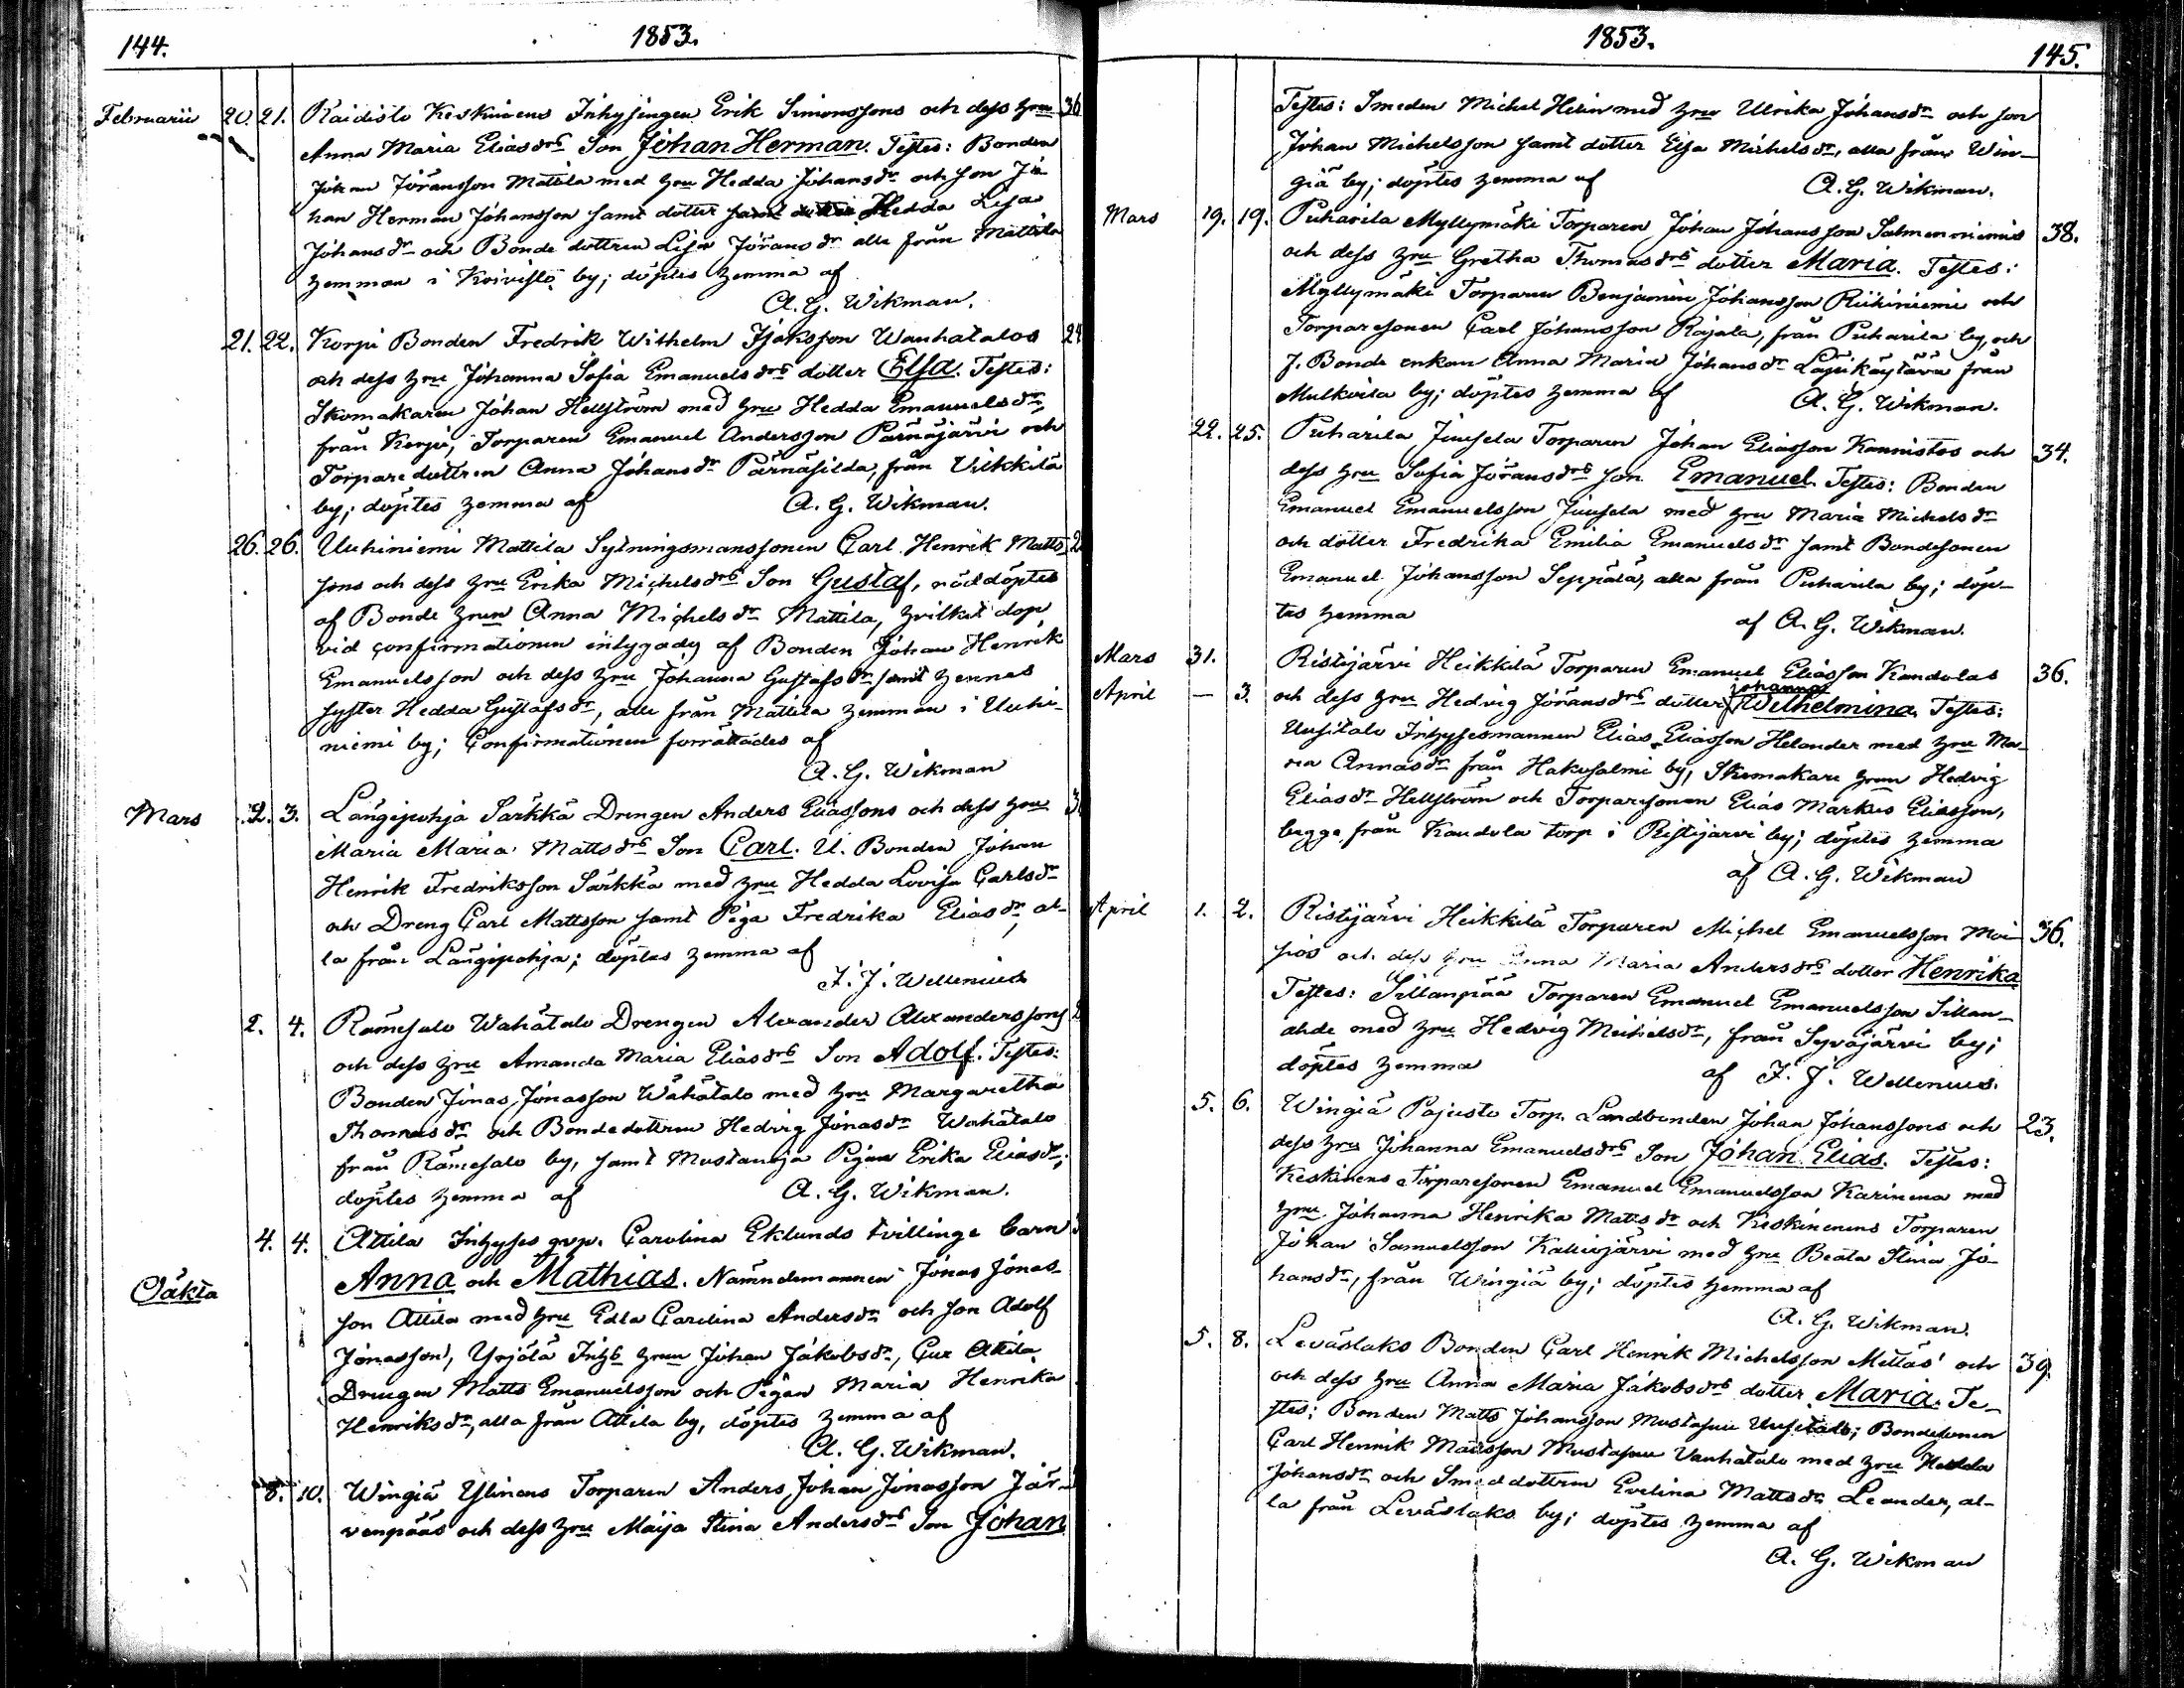 144. 1853.
Februarii 20. 21. Raidisto Keskinens Inhysingen Erik Simonssons och dess hru 36
Anna Maria Eliasdrs Son Johan Herman. Testes: Bonden
Johan Jöransson Mattila med hru Hedda Johansdr och son Jo-
han Herman Johansson samt dotter samt dotter Hedda Lisa
Johansdr och Bonde dottren Lisa Jöransdr alla från Mattila
hemman i Koivisto by; döptes hemma af
A. G. Wikman.
21. 22. Korpi Bonden Fredrik Wilhelm Isaksson Wanhatalos 24
och dess hru Johanna Sofia Emanuelsdrs dotter Elsa. Testes:
Skomakaren Johan Hellström med hru Hedda Emanuelsdr,
från Korpi, Torparen Emanuel Andersson Pärnäjärvi och
Torparedottren Anna Johansdr Pärnäsilda, från Vilkkilä
by; döptes hemma af A. G. Wikman.
26. 26. Uuhiniemi Mattila Sytningsmanssonen Carl Henrik Matts-
sons och dess hru Erika Michelsdrs Son Gustaf, nöddöptes
af Bonde hrun Anna Michelsdr Mattila, hvilket dop
vid confirmationen intygades af Bonden Johan Henrik
Emanuelsson och dess hru Johanna Gustafsdr samt hennes
syster Hedda Gustafsdr, alla från Mattila hemman i Uuhi-
niemi by; Confirmationen förrättades af
A. G. Wikman
Mars 2. 3. Längipohja Särkkä Drengen Anders Eliassons och dess hru
Maria Maria Mattsdrs Son Carl. U. Bonden Johan
Henrik Fredriksson Särkkä med hru Hedda Lovisa Carlsdr
och Dreng Carl Mattsson samt Piga Fredrika Eliasdr, al-
la från Längipohja; döptes hemma af
F. J. Wellenius
2. 4. Rämesalo Wahätalo Drengen Alexander Alexanderssons
och dess hru Amanda Maria Eliasdrs Son Adolf. Testes:
Bonden Jonas Jonasson Wähätalo med hru Margaretha
Thomasdr och Bondedottren Hedvig Jonasdr Wahätalo
från Rämesalo by, samt Mustanoja Pigan Erika Eliasdr;
döptes hemma af A. G. Wikman.
4. 4. Attila Inhyses qvp. Carolina Eklunds tvillinge barn
Oäkta Anna och Mathias. Nämndemannen Jonas Jonas-
son Attila med hru Edla Carolina Andersdr och son Adolf
Jonasson, Yrjölä Inhs hrun Johan Jakobsdr, Gus Attila
Drengen Matts Emanuelsson och Pigan Maria Henrika
Henriksdr, alla från Attila by, döptes hemma af
A. G. Wikman.
8. 10. Wingiä Ylinens Torparen Anders Johan Jonasson Jär-
venpääs och dess hru Maija Stina Andersdrs Son Johan
1853. 145.
Testes: Smeden Michel Helin med hru Ulrika Johansdr och son
Johan Michelsson samt dotter Elsa Michelsdr, alla från Win-
giä by; döptes hemma af A. G. Wikman.
Mars 19. 19. Puharila Myllymäki Torparen Johan Johansson Salmenniemis 38.
och dess hru Gretha Thomasdrs dotter Maria. Testes:
Myllymäki Torparen Benjamin Johansson Riikiniemi och
Torparesonen Carl Johansson Rajala, från Puharila by, och
f. Bonde enkan Anna Maria Johansdr Läsikäytävä från
Mulkoila by; döptes hemma af A. G. Wikman.
22. 25. Puharila Juusela Torparen Johan Eliasson Kannistos och 34.
dess hru Sofia Jöransdrs son Emanuel. Testes: Bonden
Emanuel Emanuelsson Juusela med hru Maria Michelsdr
och dotter Fredrika Emilia Emanuelsdr samt Bondesonen
Emanuel Johansson Seppälä, alla från Puharila by; döp-
tes hemma af A. G. Wikman.
Mars 31. Ristijärvi Heikkilä Torparen Emanuel Eliasson Kandolas 36.
Johanna
April — 3. och dess hru Hedvig Jöransdrs dotter Wilhelmina. Testes:
Uusitalo Inhysesmannen Elias Eliasson Helander med hru Ma-
ria Annasdr från Hakosalmi by, Skomakare hrun Hedvig
Eliasdr Hellström och Torparesonen Elias Markus Eliasson,
begge från Kandola torp i Ristijärvi by; döptes hemma
af A. G. Wikman
April 1. 2. Ristijärvi Heikkilä Torparen Michel Emanuelsson Moi- 36.
sios och dess hru Anna Maria Andersdrs dotter Henrika
Testes: Sillanpää Torparen Emanuel Emanuelsson Sillan-
ahde med hru Hedvig Michelsdr, från Syväjärvi by;
döptes hemma af F. J. Wellenius.
5. 6. Wingiä Pajusto Torp. Landbonden Johan Johanssons och 23.
dess hru Johanna Emanuelsdrs Son Johan Elias. Testes:
Keskinens Torparesonen Emanuel Emanuelsson Karinena med
hru Johanna Henrika Mattsdr och Keskinens Torparen
Johan Samuelsson Kalliojärvi med hru Beata Stina Jo-
hansdr, från Wingiä by; döptes hemma af
A. G. Wikman.
5. 8. Leväslaks Bonden Carl Henrik Michelsson Mellas' och 39.
och dess hru Anna Maria Jakobsdrs dotter Maria. Te-
stes: Bonden Matts Johansson Mustasuu Uusitalo; Bondesonen
Carl Henrik Mattsson Mustasuu Vanhatalo med hru Hedda
Johansdr och Smeddottren Evelina Mattsdr Leander, al-
la från Leväslaks by; döptes hemma af
A. G. Wikman